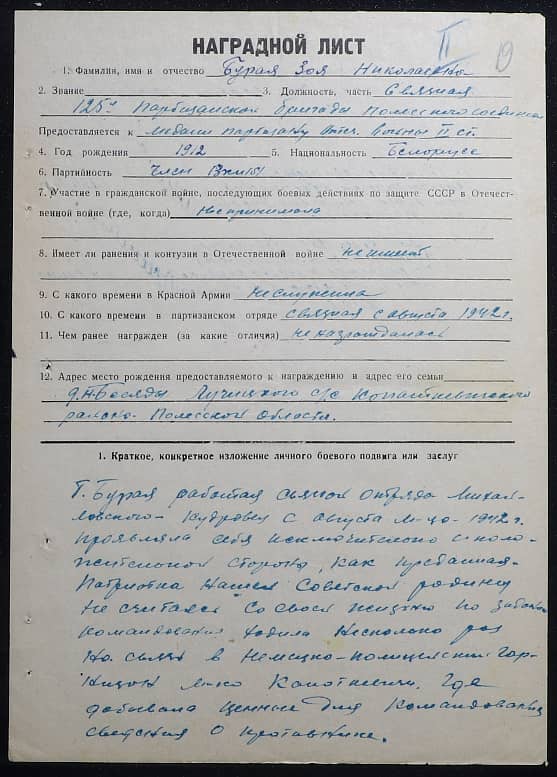 II 19
НАГРАДНОЙ ЛИСТ
1. Фамилия, имя и отчество Бурая Зоя Николаевна
2. Звание 3. Должность, часть Связная
125й Партизанской бригады Полесского соединения
Представляется к медали партизану Отеч. войны II ст.
4. Год рождения 1912 5. Национальность Белорусс
6. Партийность Член ВКП(б)
7. Участие в гражданской войне, последующих боевых действиях по защите СССР в Отечест-
венной войне (где, когда) Не принимала
8. Имеет ли ранения и контузии в Отечественной войне не имеет
9. С какого времени в Красной Армии не служила
10. С какого времени в партизанском отряде связная с августа 1942 г.
11. Чем ранее награжден (за какие отличия) не награждалась
12. Адрес место рождения предоставляемого к награждению и адрес его семьи
д. Н-Беседы Лучицкого с/с Копаткевичского
района Полесской области.
1. Краткое, конкретное изложение личного боевого подвига или заслуг
Т. Бурая работая связной отряда Михай-
ловского Кудравец с августа м-ца 1942 г.
проявляла себя исключительно с поло-
жительной стороны, как преданная
Патриотка нашей Советской родины
не считаясь со своей жизнью по заданию
командования ходила несколько раз
на связь в немецко-полицейский гар-
низон м-ко Копаткевичи, где
добывала ценные для командования
сведения о противнике.